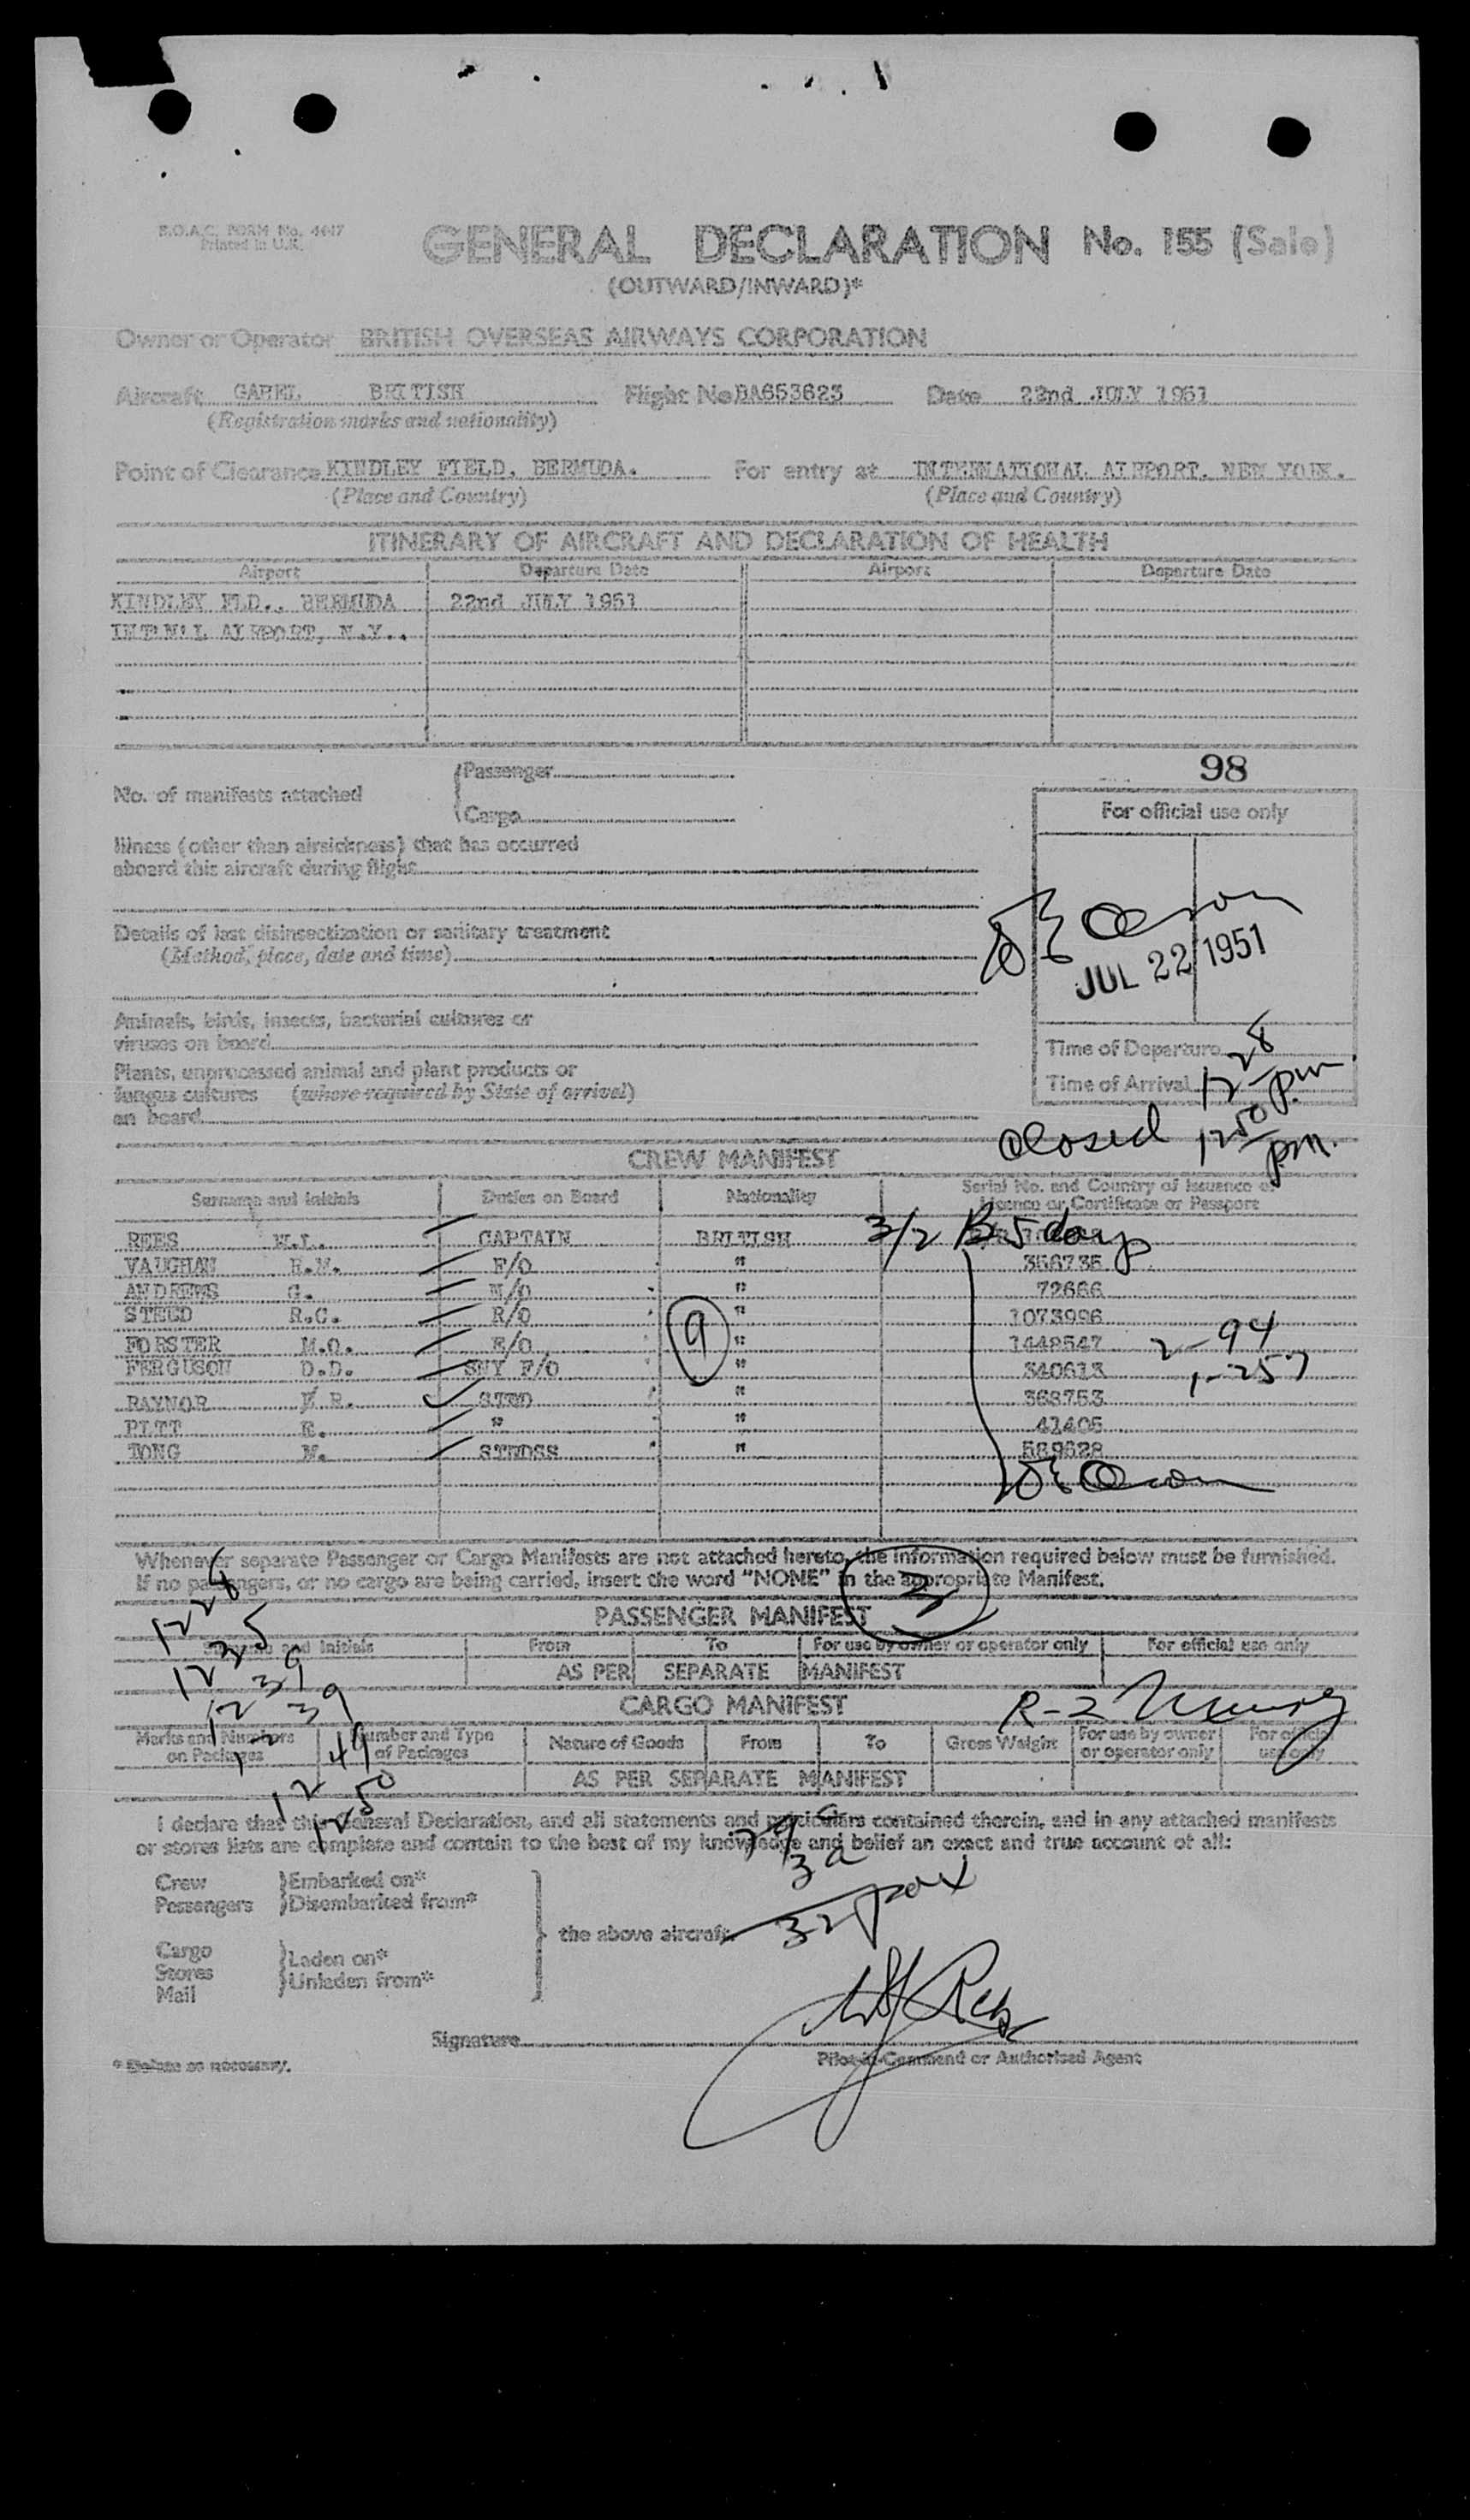 B.O.A.C. FORM No. 4447
Printed in U.K.
GENERAL DECLARATION No. 155 (Sale)
(OUTWARD/INWARD)*
Owner or Operator BRITISH OVERSEAS AIRWAYS CORPORATION
Aircraft BRITISH Flight No BA653623 Date 22nd JULY 1951
(Registration marks and nationality)
Point of Clearance KINDLEY FIELD, BERMUDA. For entry at INTERNATIONAL AIRPORT. NEW YORK.
(Place and Country) (Place and Country)
ITINERARY OF AIRCRAFT AND DECLARATION OF HEALTH
Airport Departure Date Airport Departure Date
KINDLEY FLD., BERMUDA 22nd JULY 1951
INT'N'L AIRPORT, N.Y..
98
No. of manifests attached Passenger
Cargo
For official use only
Illness (other than airsickness) that has occurred
aboard this aircraft during flight
Details of last disinsectization or sanitary treatment
(Method, place, date and time)
JUL 22 1951
Animals, birds, insects, bacterial cultures or
viruses on board
Plants, unprocessed animal and plant products or
fungus cultures (where required by State of arrival)
on board
Time of Departure
Time of Arrival 12 28 pm
Closed 12 50 pm.
CREW MANIFEST
Surname and Initials Duties on Board Nationality Serial No. and Country of Issuance of
Licence or Certificate or Passport
REES W.L. CAPTAIN BRITISH 3/2 B 5 days
VAUGHAN R.M. F/O " 356735
ANDREWS G. N/O " 72666
STEED R.C. R/O " 1073996
9
FORSTER M.O. E/O " 1448547 2-94
FERGUSON D.D. SNY F/O " 340613 1-257
RAYNOR R. STWD " 368753
PITT E. " " 41405
TONG M. STWDSS " 589628
Whenever separate Passenger or Cargo Manifests are not attached hereto, the information required below must be furnished.
If no passengers, or no cargo are being carried, insert the word "NONE" in the appropriate Manifest.
3
12 28
12 35
12 39
12 39
12 49
12 50
PASSENGER MANIFEST
Surname and Initials From To For use by owner or operator only For official use only
AS PER SEPARATE MANIFEST
CARGO MANIFEST
Marks and Numbers on Packages Number and Type of Packages Nature of Goods From To Gross Weight For use by owner or operator only For official use only
AS PER SEPARATE MANIFEST
I declare that this General Declaration, and all statements and particulars contained therein, and in any attached manifests
or stores lists are complete and contain to the best of my knowledge and belief an exact and true account of all:
32 pax
Crew Embarked on*
Passengers Disembarked from*
the above aircraft.
Cargo Laden on*
Stores Unladen from*
Mail
Signature
Pilot-in-Command or Authorised Agent
* Delete as necessary.